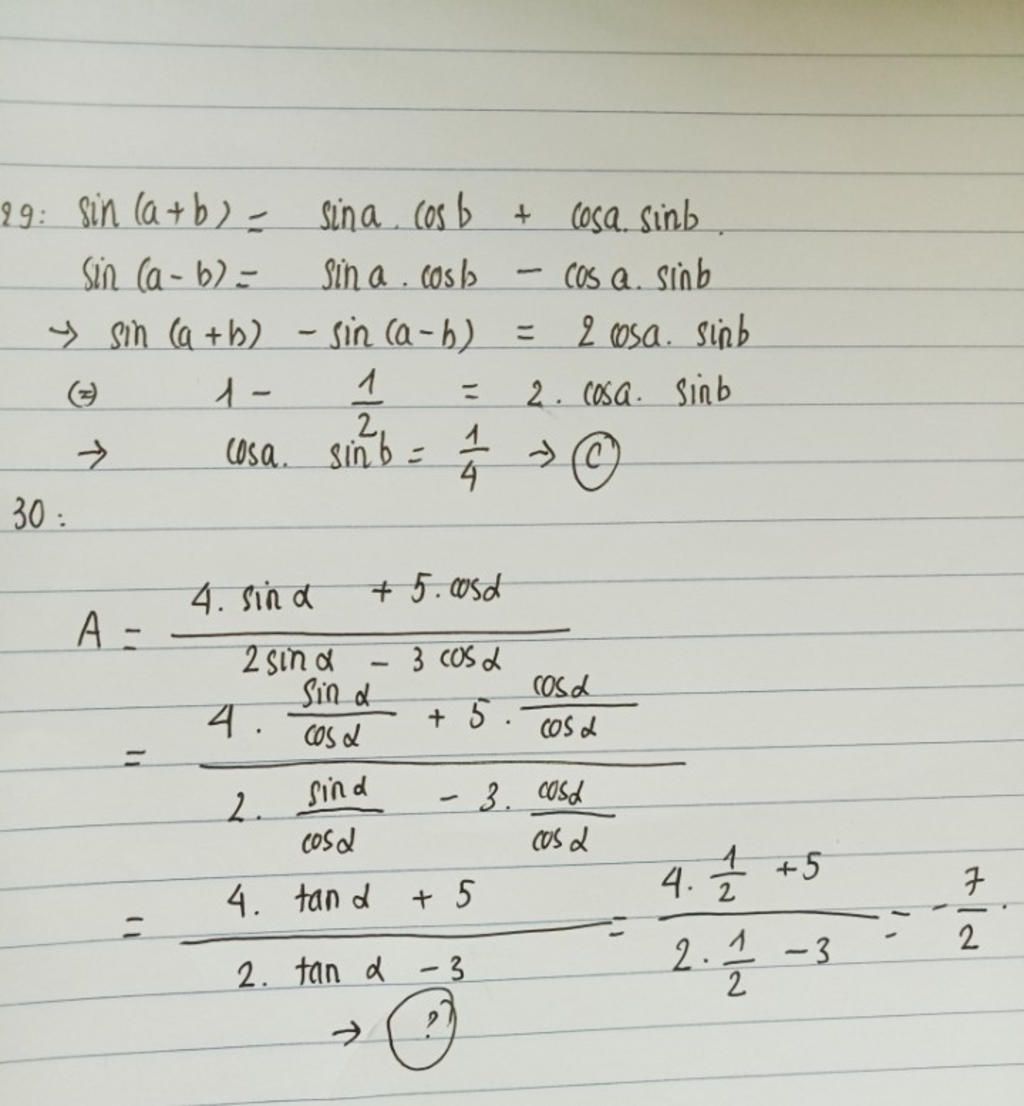 29: sin (a+b) = sina. cosb + cosa. sinb.
sin (a-b) = sina. cosb - cosa. sinb
→ sin (a+b) - sin (a-b) = 2 cosa. sinb
(=) 1 - 1/2 = 2. cosa. sinb
→ cosa. sinb = 1/4 → C
30:
A = (4. sin α + 5. cos α) / (2 sin α - 3 cos α)
= (4. sin α / cos α + 5. cos α / cos α) / (2. sin α / cos α - 3. cos α / cos α)
= (4. tan α + 5) / (2. tan α - 3) = (4. 1/2 + 5) / (2. 1/2 - 3) = - 7/2.
→ ?